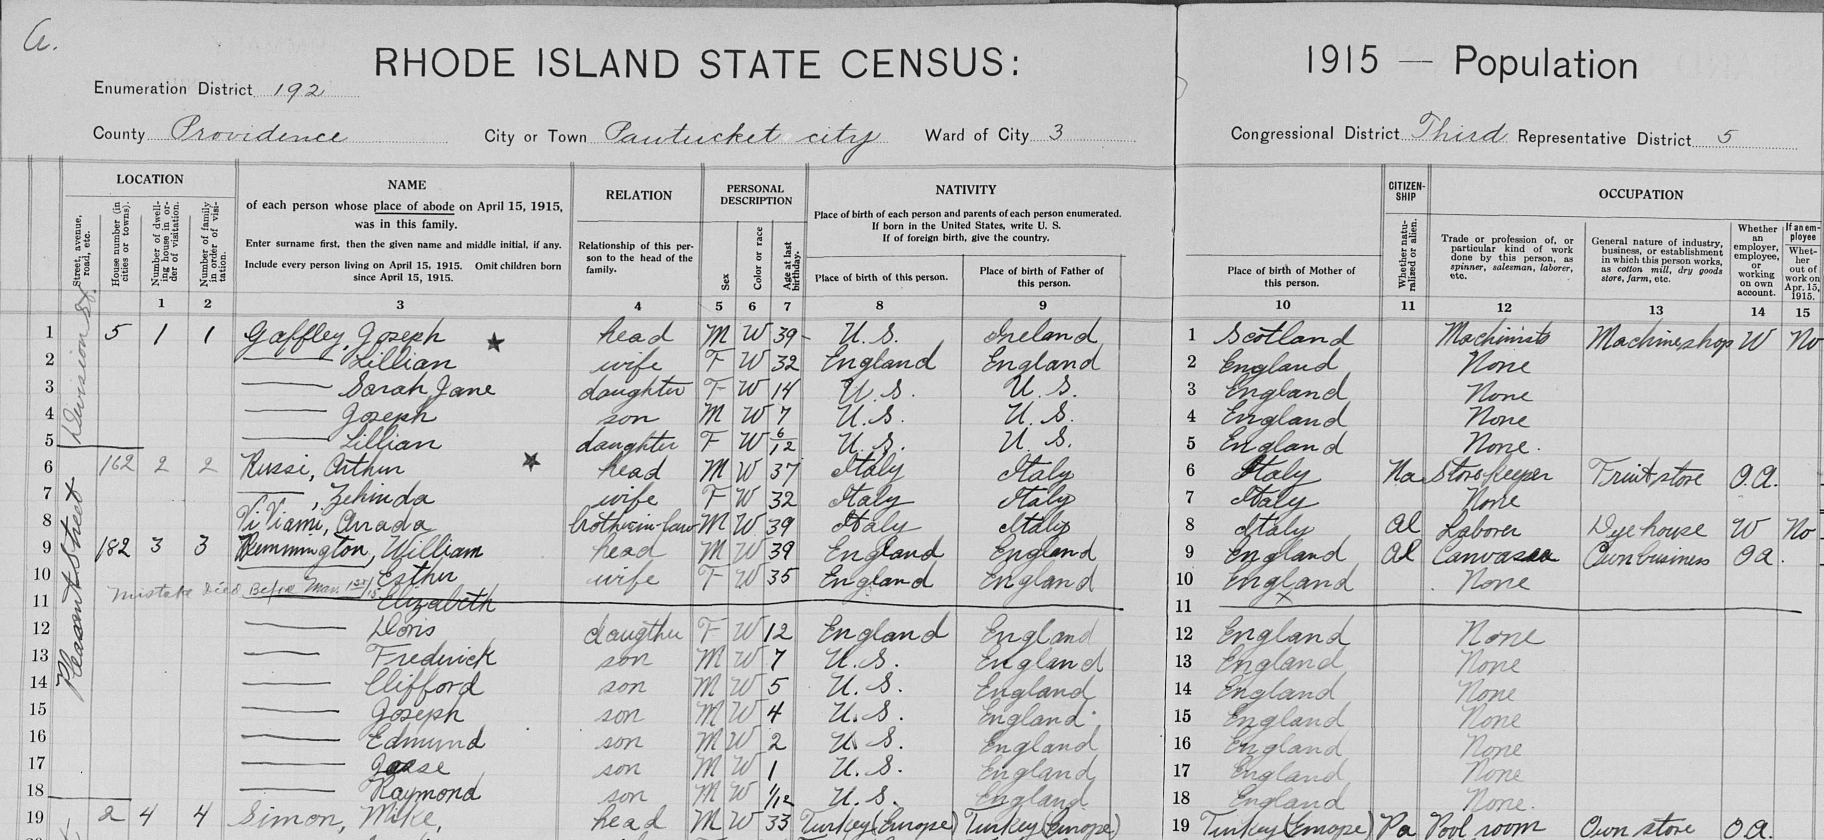 a.
RHODE ISLAND STATE CENSUS: 1915 — Population
Enumeration District 192
County Providence City or Town Pawtucket city Ward of City 3 Congressional District Third Representative District 5
LOCATION
NAME
of each person whose place of abode on April 15, 1915,
was in this family.
Enter surname first, then the given name and middle initial, if any.
Include every person living on April 15, 1915. Omit children born
since April 15, 1915.
RELATION
Relationship of this per-
son to the head of the
family.
PERSONAL
DESCRIPTION
NATIVITY
Place of birth of each person and parents of each person enumerated.
If born in the United States, write U. S.
If of foreign birth, give the country.
CITIZEN-
SHIP
OCCUPATION
Street, avenue,
road, etc.
House number (in
cities or towns).
Number of dwell-
ing house in or-
der of visitation.
Number of family
in order of visi-
tation.
Sex
Color or race
Age at last
birthday.
Place of birth of this person.
Place of birth of Father of
this person.
Place of birth of Mother of
this person.
Whether natu-
ralized or alien.
Trade or profession of, or
particular kind of work
done by this person, as
spinner, salesman, laborer,
etc.
General nature of industry,
business, or establishment
in which this person works,
as cotton mill, dry goods
store, farm, etc.
Whether
an
employer,
employee,
or
working
on own
account.
If an em-
ployee
Whet-
her
out of
work on
Apr. 15,
1915.
1 2 3 4 5 6 7 8 9 10 11 12 13 14 15
Division St.
Pleasant Street
1 5 1 1 Gaffley, Joseph head M W 39 U. S. Ireland 1 Scotland Machinists Machine shop W No
2 Lillian wife F W 32 England England 2 England None
3 Sarah Jane daughter F W 14 U. S. U. S. 3 England None
4 Joseph son M W 7 U. S. U. S. 4 England None
5 Lillian daughter F W 6/12 U. S. U. S. 5 England None.
6 162 2 2 Russi, Arthur head M W 37 Italy Italy 6 Italy Na Storekeeper Fruit store O.A.
7 , Zelinda wife F W 32 Italy Italy 7 Italy None
8 Viviami, brother-in-law M W 39 Italy Italy 8 Italy Al Laborer Dye house W No
9 182 3 3 Remmington, William head M W 39 England England 9 England Al Own business O A.
10 Esther wife F W 35 England England 10 England None
11 mistake Died Before Elizabeth 11
12 Doris daugther F W 12 England England 12 England None
13 Frederick son M W 7 U. S. England 13 England None
14 Clifford son M W 5 U. S. England 14 England None
15 Joseph son M W 4 U. S. England 15 England None
16 Edmund son M W 2 U. S. England 16 England None
17 Jesse son M W 1 U. S. England 17 England None
18 Raymond son M W 1/12 U. S. England 18 England None.
19 2 4 4 Simon, Mike, head M W 33 Turkey (Europe) Turkey (Europe) 19 Turkey (Europe) Pa Pool room Own store O.A.